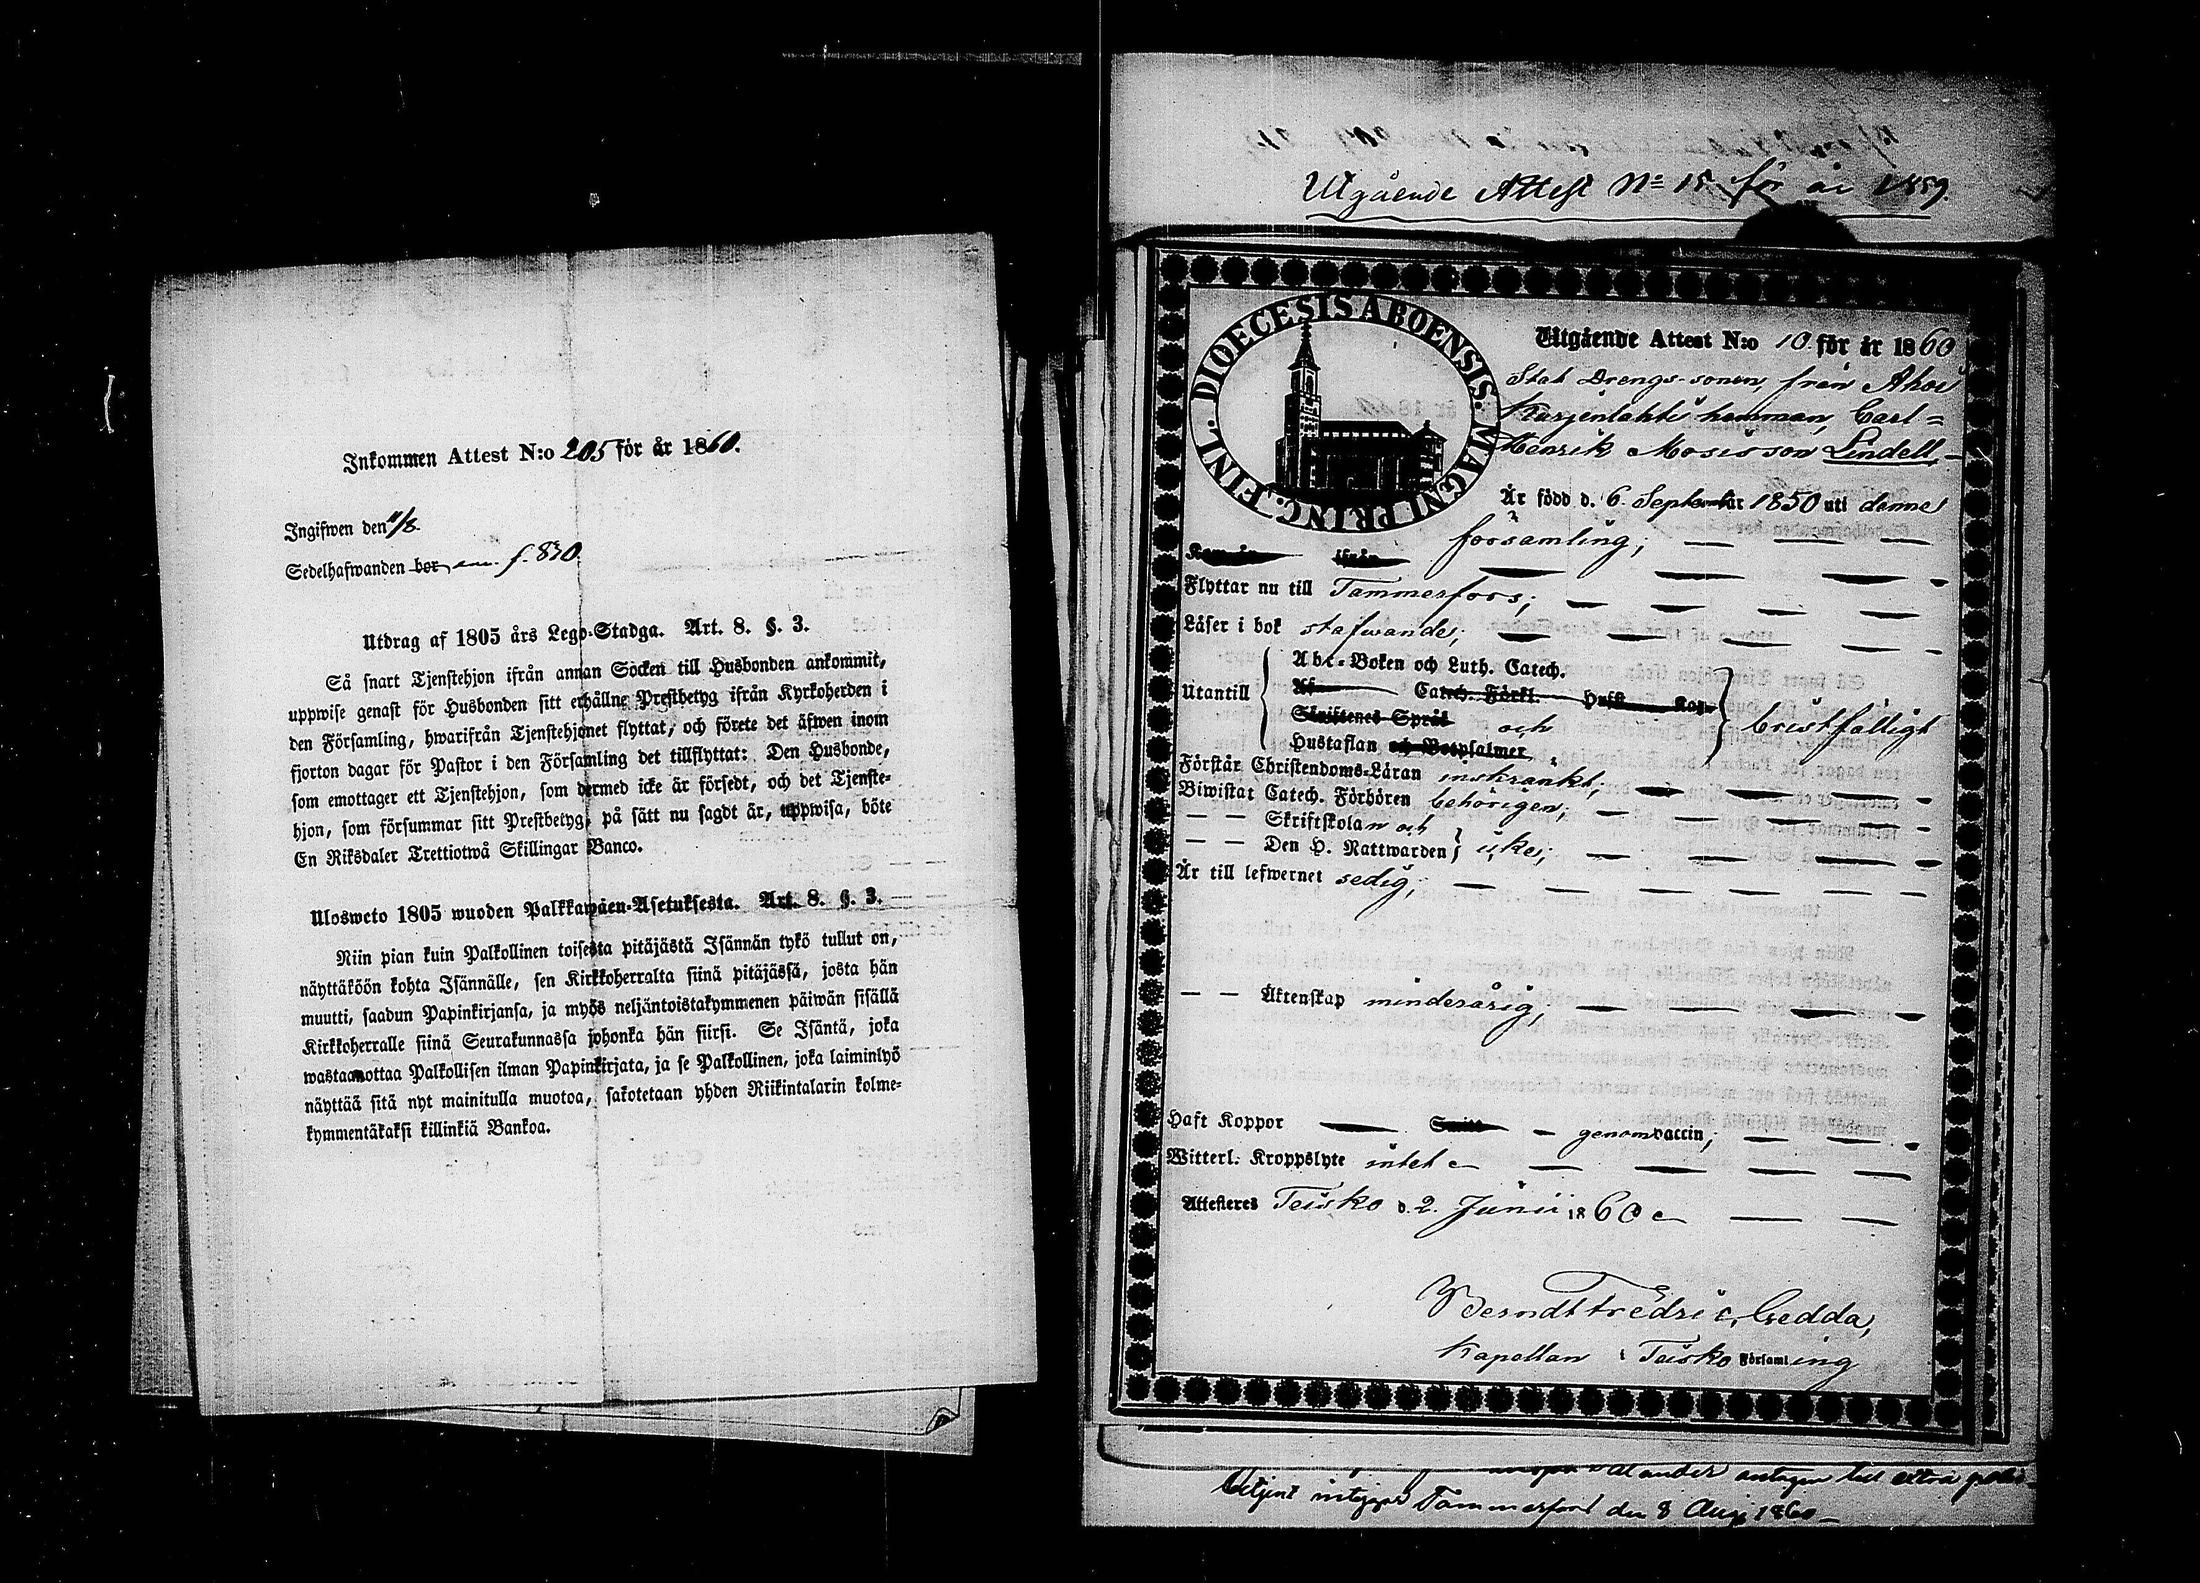 Inkommen Attest N:o 205 för år 1860.
Ingifwen den 11/8
Sedelhafwanden bor f. 830.
Utdrag af 1805 års Lego-Stadga. Art. 8. §. 3.
Så snart Tjenstehjon ifrån annan Socken till Husbonden ankommit,
uppwise genast för Husbonden sitt erhållne Prestbetyg ifrån Kyrkoherden i
den Församling, hwarifrån Tjenstehjonet flyttat, och förete det äfwen inom
fjorton dagar för Pastor i den Församling det tillflyttat: Den Husbonde,
som emottager ett Tjenstehjon, som dermed icke är försedt, och det Tjenste-
hjon, som försummar sitt Prestbetyg, på sätt nu sagdt är, uppwisa, böte
En Riksdaler Trettiotwå Skillingar Banco.
Ulosweto 1805 wuoden Palkkawäen-Asetuksesta. Art. 8. §. 3.
Niin pian kuin Palkollinen toisesta pitäjästä Isännän tykö tullut on,
näyttäköön kohta Isännälle, sen Kirkkoherralta siinä pitäjässä, josta hän
muutti, saadun Papinkirjansa, ja myös neljäntoistakymmenen päiwän sisällä
Kirkkoherralle siinä Seurakunnassa johonka hän siirsi. Se Isäntä, joka
wastaanottaa Palkollisen ilman Papinkirjata, ja se Palkollinen, joka laiminlyö
näyttää sitä nyt mainitulla muotoa, sakotetaan yhden Riikintalarin kolme-
kymmentäkaksi killinkiä Bankoa.
Utgående Attest No 15 för år 1859.
DIOECESIS ABOENSIS. MAGNI PRINC. FINL.
Utgående Attest N:o 10 för år 1860
Stat Drengs-sonen, från Ahoi
Kurjenlahti hemman, Carl-
Henrik Mosisson Lindell
Är född d. 6. September 1850 uti denna
församling;
Flyttar nu till Tammerfors;
Läser i bok stafwande;
Abc-Boken och Luth. Catech.
Catech. Förkl.
Utantill
Skriftenes Språk och bristfälligt
Hustaflan och Botpsalmer
Förstår Christendoms-Läran inskränkt;
Biwistat Catech. Förhören behörigen;
— — Skriftskolan och
— — Den H. Nattwarden icke;
Är till lefwernet sedig;
— — Äktenskap minderårig,
Haft Koppor genom vaccin;
Witterl. Kroppslyte intet
Attesteres Teisko d. 2. Junii 1860
Berndt Fredric Gedda,
Kapellan i Teisko Församling
antagen till extra
Tammerfors den 8 Aug 1860